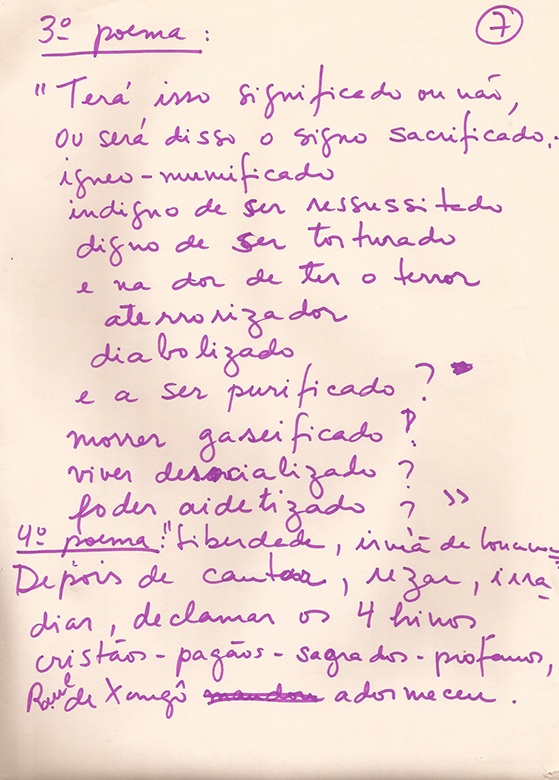 3º poema:
7
"Terá isso significado ou não,
ou será disso o signo sacrificado,
igneo-mumificado
indigno de ser ressussitado
digno de ser torturado
e na dor de ter o terror
aterrorizador
diabolizado
e a ser purificado?
morrer gaseificado?
viver desocializado?
foder aidetizado? "
4º poema: "Liberdede, irmã de loucura
Depois de cantar, rezar, irra-
diar, declamar os 4 hinos
cristãos-pagãos-sagrados-profanos,
Raul de Xangô adormeceu.